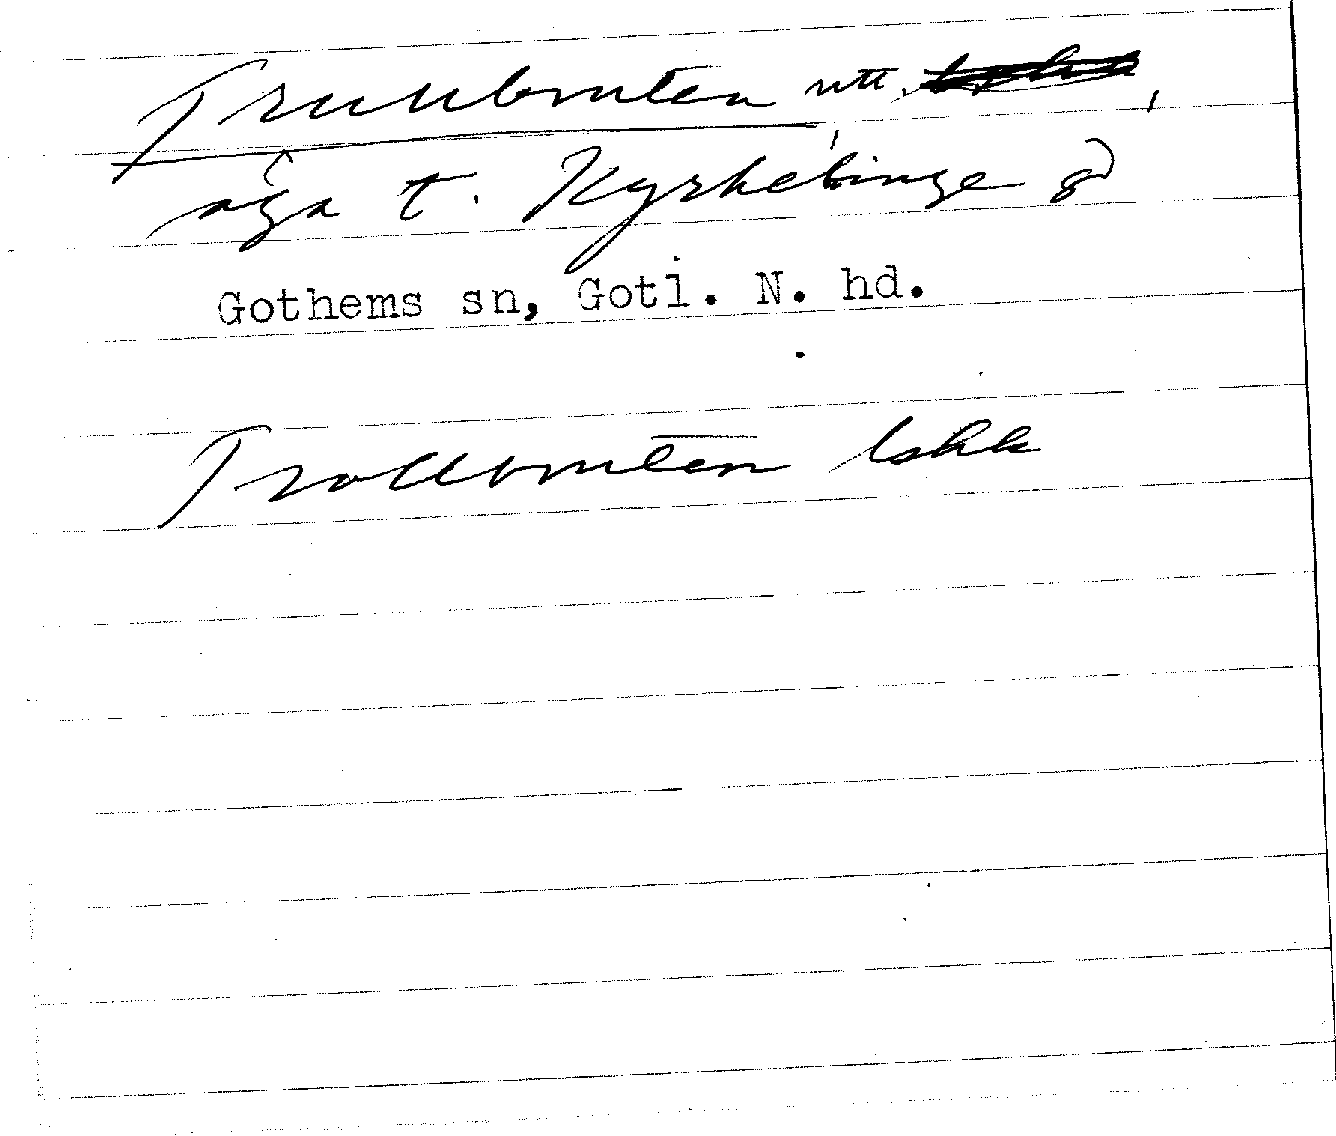 Trullbruten utt.,
äga t. Kyrkebinge gd
Gothems sn, Gotl. N. hd.
Trollbruten Lskk